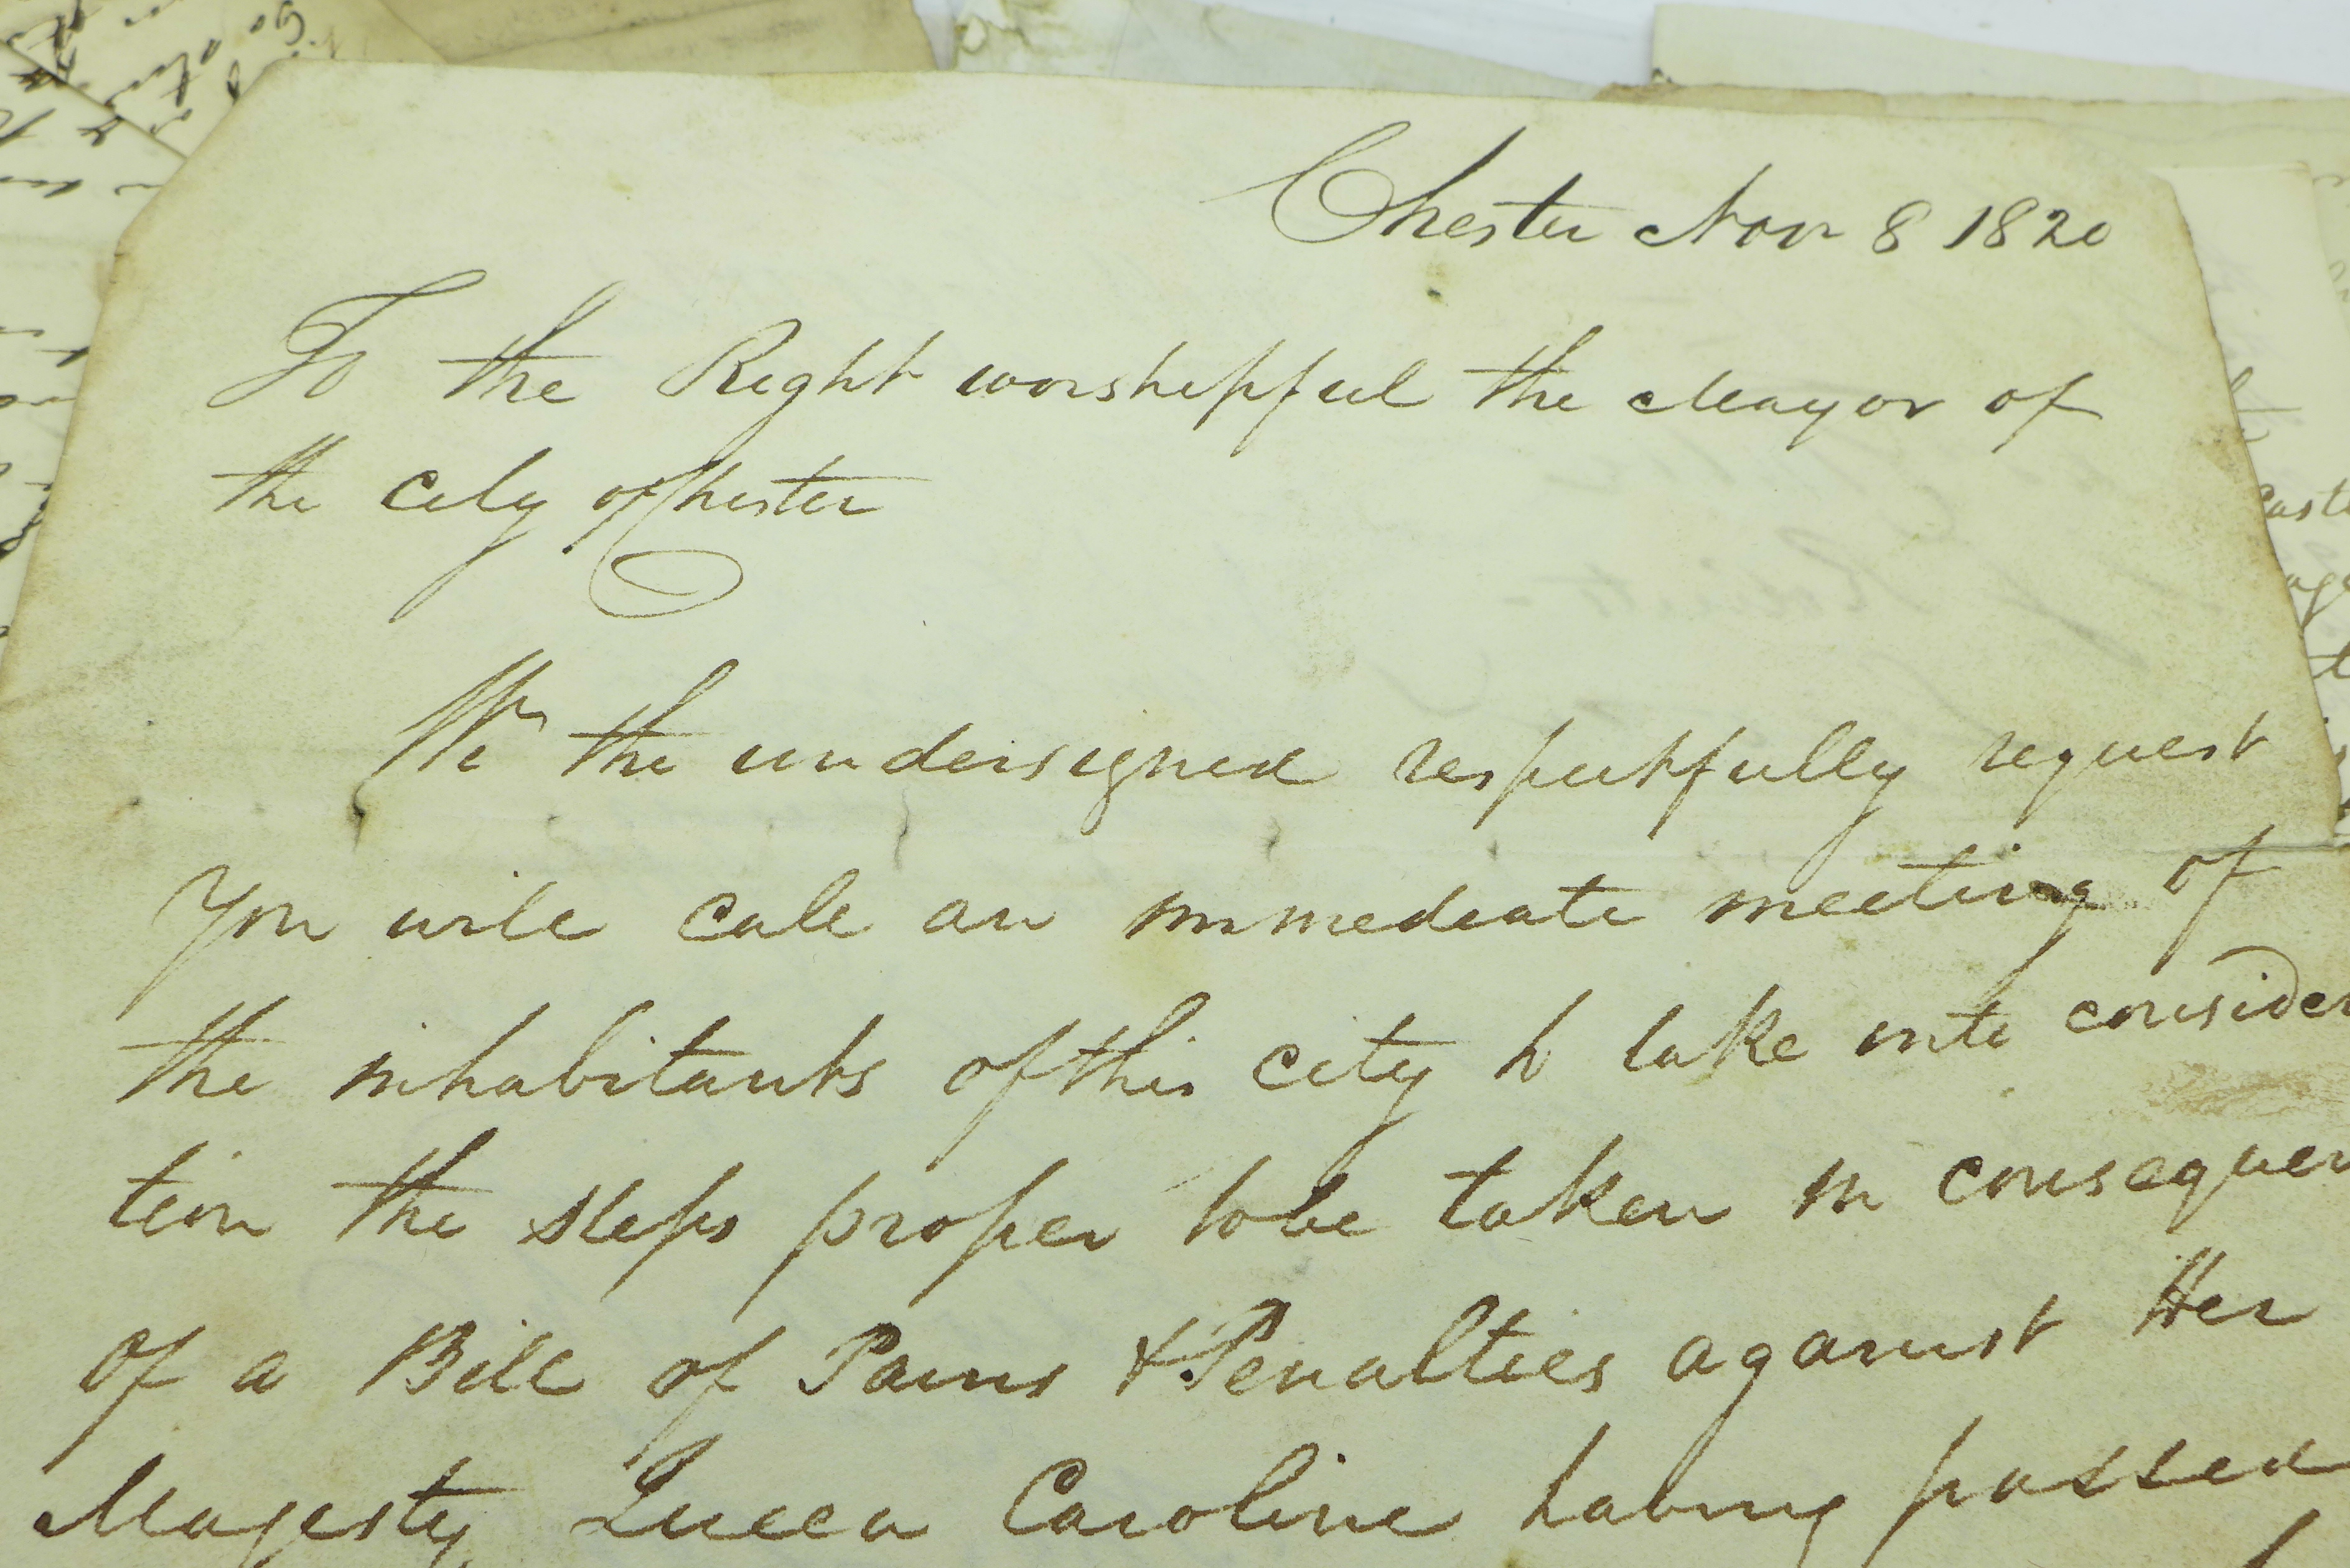 Chester Nov 8 1820
To the Right worshipful the Mayor of
the City of Chester
We the undersigned respectfully request
you will call an immediate meeting of
the inhabitants of this city to take into consider
tion the steps proper to be taken in consequen
of a Bill of Pains & Penalties against Her
Majesty Queen Caroline having passed